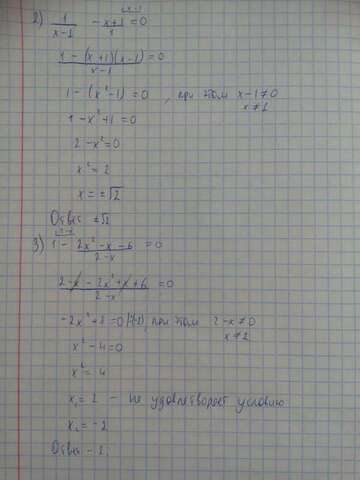 2) 1/(x-1) - (x+1)/1 = 0
(1-(x+1)(x-1))/(x-1) = 0
1-(x²-1) = 0, при этом x-1≠0
x≠1
1-x²+1=0
2-x²=0
x²=2
x=±√2
Ответ ±√2
3) 1 - (2x²-x-6)/(2-x) = 0
(2-x-2x²+x+6)/(2-x) = 0
-2x²+8=0 |:(-2), при этом 2-x≠0
x≠2
x²-4=0
x²=4
x₁=2 - не удовлетворяет условию
x₂=-2
Ответ -2.